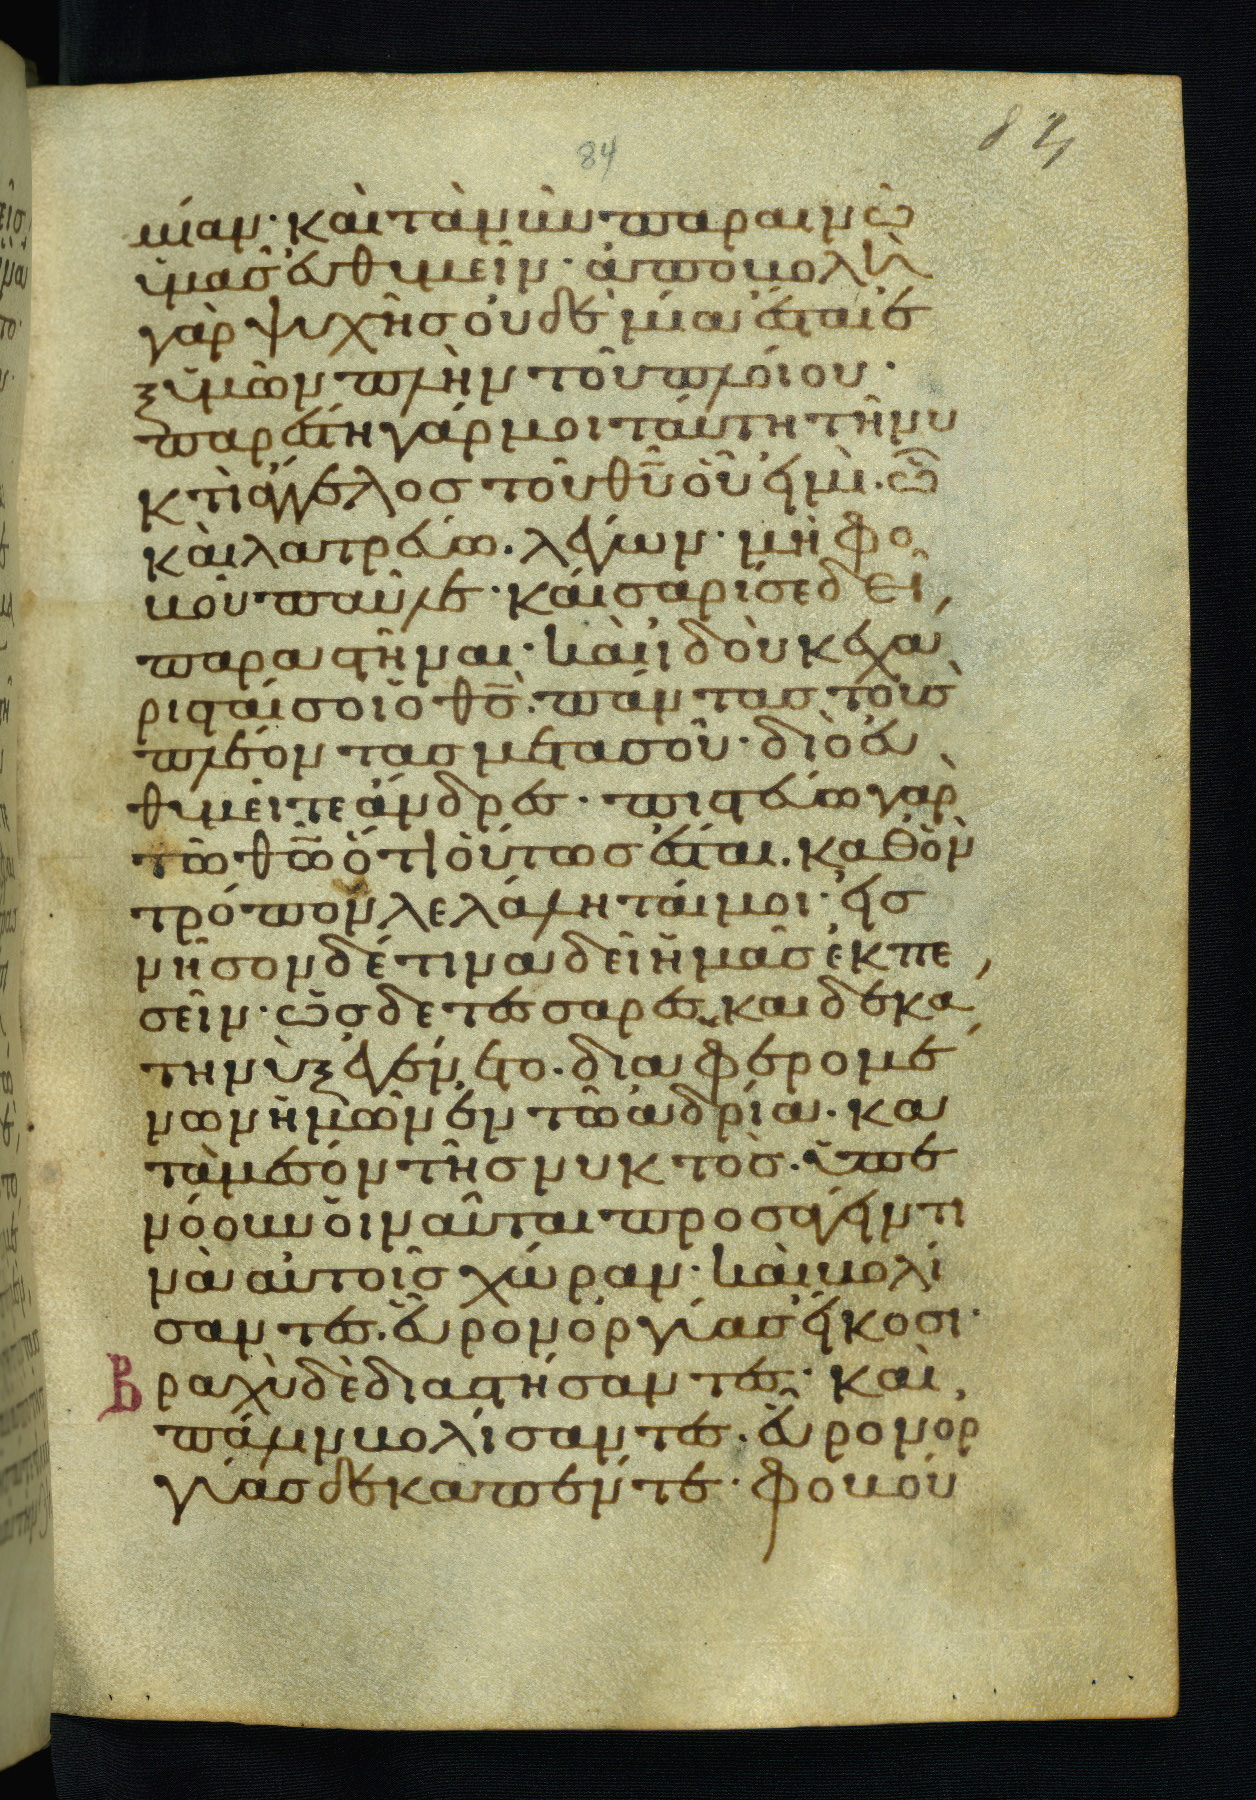 84
84
μίαν· καὶ τὰ νῦν παραινῶ
ὑμᾶς εὐθυμεῖν· ἀποβολὴ
γὰρ ψυχῆς οὐδεμία ἔσται ἐ
ξ ὑμῶν πλὴν τοῦ πλοίου·
παρέστη γάρ μοι ταύτη τῆ νυ
κτὶ ἄγγελος τοῦ θῦ οὗ εἰμὶ· ὧ
καὶ λατρεύω. λέγων· μὴ φο
βοῦ παῦλε· καίσαρί σε δεῖ
παραστῆναι· καὶ ἰδοὺ κεχά
ρισταί σοι ὁ θσ. πάντας τοὺς
πλέοντας μετὰ σοῦ· διὸ εὐ
θυμεῖτε ἄνδρες· πιστεύω γὰρ
τῶ θῶ ὅτι οὕτως ἔσται. καθ' ὃν
τρόπον λελάληταί μοι· εἰς
νῆσον δέ τινα δεῖ ἡμᾶς ἐκπε
σεῖν· ὡς δὲ τεσσαρεσκαιδεκά
τη νὺξ ἐγένετο. διαφερομέ
νων ἡμῶν ἐν τῶ ἀδρία. κα
τὰ μέσον τῆς νυκτὸς. ὑπε
νόουν οἱ ναῦται προσάγειν τι
νὰ αὐτοῖς χώραν· καὶ βολί
σαντες. εὗρον ὀργιὰς εἴκοσι·
Βραχὺ δὲ διαστήσαντες· καὶ
πάλιν βολίσαντες. εὗρον ὀρ
γιὰς δεκαπέντε· φοβού